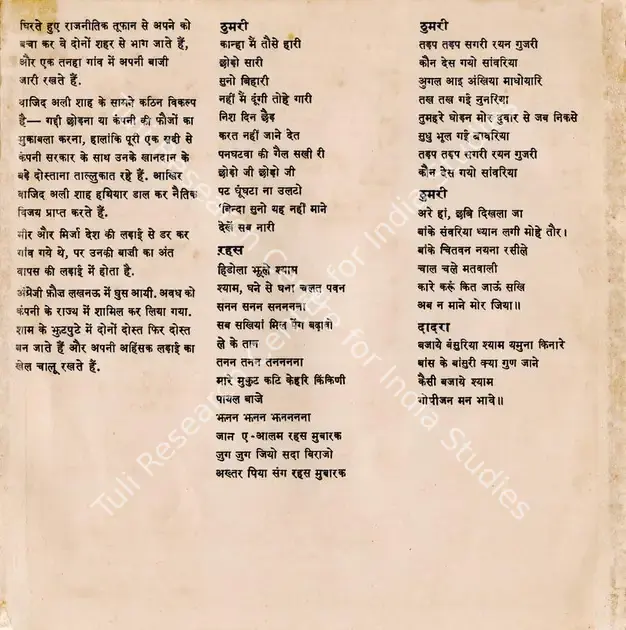 घिरते हुए राजनीतिक तूफान से अपने को
बचा कर वे दोनों शहर से भाग जाते हैं,
और एक तनहा गांव में अपनी बाजी
जारी रखते हैं.
वाजिद अली शाह के सामने कठिन विकल्प
है— गद्दी छोड़ना या कंपनी की फौजों का
मुकाबला करना, हालांकि पूरी एक सदी से
कंपनी सरकार के साथ उनके खानदान के
बड़े दोस्ताना ताल्लुकात रहे हैं. आखिर
वाजिद अली शाह हथियार डाल कर नैतिक
विजय प्राप्त करते हैं.
मीर और मिर्जा देश की लड़ाई से डर कर
गांव गये थे, पर उनकी बाजी का अंत
वापस की लड़ाई में होता है.
अंग्रेजी फ़ौज लखनऊ में घुस आयी. अवध को
कंपनी के राज्य में शामिल कर लिया गया.
शाम के झुटपुटे में दोनों दोस्त फिर दोस्त
बन जाते हैं और अपनी अहिंसक लढ़ाई का
खेल चालू रखते हैं.
ठुमरी
कान्हा मैं तोसे हारी
छोड़ो सारी
सुनो बिहारी
नहीं मैं दूंगी तोहे गारी
निश दिन छैड़
करत नहीं जाने देत
पनघटवा की गैल सखी री
छोड़ो जी छोड़ो जी
पट घूंघटा ना उलटो
'बिन्दा सुनो यह नहीं माने
देखें सब नारी
रहस
हिंडोला झूले श्याम
श्याम, घने से घना चलत पवन
सनन सनन सनननना
सब सखियां मिल पेंग बढ़ावो
ले के ताम
तनन तनन तनननना
मारे मुकुट कटि केहरि किंकिणी
पायल बाजे
झनन झनन झनननना
जान ए-आलम रहस मुबारक
जुग जुग जियो सदा बिराजो
अख्तर पिया संग रहस मुबारक
ठुमरी
तड़प तड़प सगरी रयन गुजरी
कौन देस गयो सांवरिया
अुगल आइ अंखिया माधोयारि
तख तख गई चुनरिया
तुमहरे घोड़न मोर दुवार से जब निकसे
सुधु भूल गई बावरिया
तड़प तड़प सगरी रयन गुजरी
कौन देस गयो सांवरिया
ठुमरी
अरे हां, छबि दिखला जा
बांके संवरिया ध्यान लगी मोहे तौर।
बांके चितवन नयना रसीले
चाल चले मतवाली
कारे करूं कित जाऊं सखि
अब न माने मोर जिया॥
दादरा
बजाये बंसुरिया श्याम यमुना किनारे
बांस के बांसुरी क्या गुण जाने
कैसी बजाये श्याम
गोपीजन मन भावे॥
Tuli Research Centre for India Studies
Tuli Research Centre for India Studies